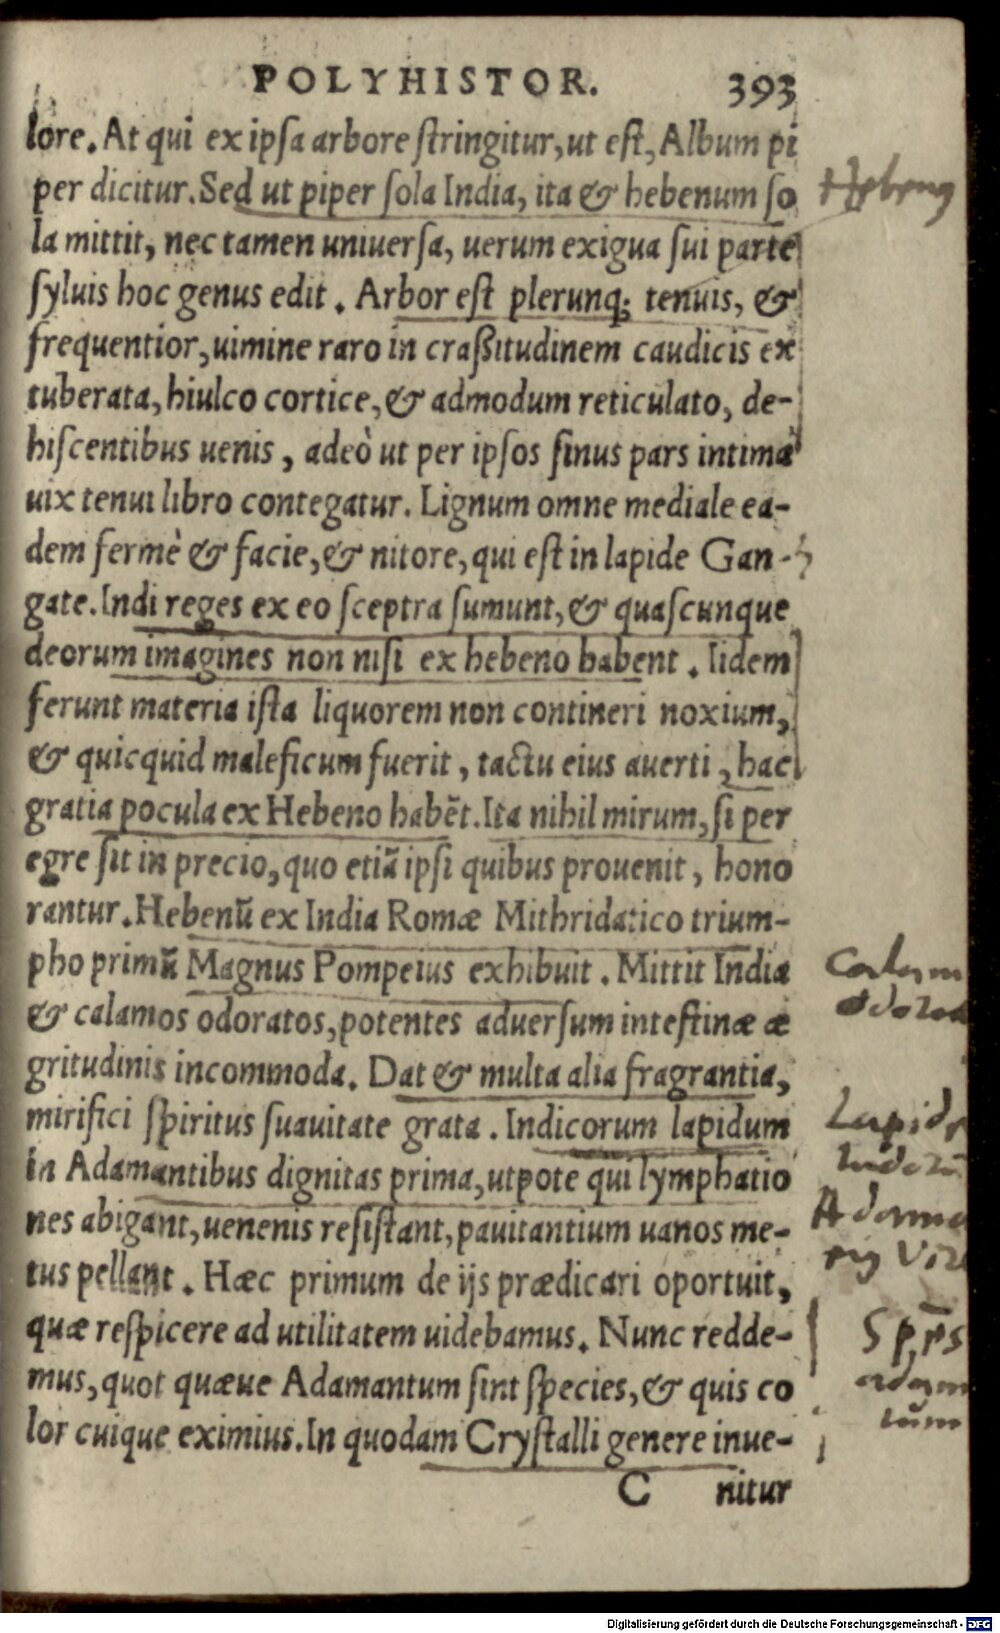 POLYHISTOR. 393
lore. At qui ex ipſa arbore ſtringitur, ut eſt, Album pi
per dicitur. Sed ut piper ſola India, ita & hebenum ſo
la mittit, nec tamen uniuerſa, uerum exigua ſui parte
ſyluis hoc genus edit. Arbor eſt plerunq; tenuis, &
frequentior, uimine raro in craßitudinem caudicis ex
tuberata, hiulco cortice, & admodum reticulato, de-
hiſcentibus uenis, adeò ut per ipſos ſinus pars intima
uix tenui libro contegatur. Lignum omne mediale ea-
dem fermè & facie, & nitore, qui eſt in lapide Gan-
gate. Indi reges ex eo ſceptra ſumunt, & quaſcunque
deorum imagines non niſi ex hebeno habent. Iidem
ferunt materia iſta liquorem non contineri noxium,
& quicquid maleficum fuerit, tactu eius auerti, hac
gratia pocula ex Hebeno habēt. Ita nihil mirum, ſi per
egre ſit in precio, quo etiā ipſi quibus prouenit, hono
rantur. Hebenū ex India Romæ Mithridatico trium-
pho primū Magnus Pompeius exhibuit. Mittit India
& calamos odoratos, potentes aduerſum inteſtinæ æ
gritudinis incommoda. Dat & multa alia fragrantia,
mirifici ſpiritus ſuauitate grata. Indicorum lapidum
in Adamantibus dignitas prima, utpote qui lymphatio
nes abigant, uenenis reſiſtant, pauitantium uanos me-
tus pellant. Hæc primum de ijs prædicari oportuit,
quæ reſpicere ad utilitatem uidebamus. Nunc redde-
mus, quot quæue Adamantum ſint ſpecies, & quis co
lor cuique eximius. In quodam Cryſtalli genere inue-
C nitur
Hebenus
Calam
odorat
Lapid
Indorū
Adama
Digitalisierung gefördert durch die Deutsche Forschungsgemeinschaft - DFG